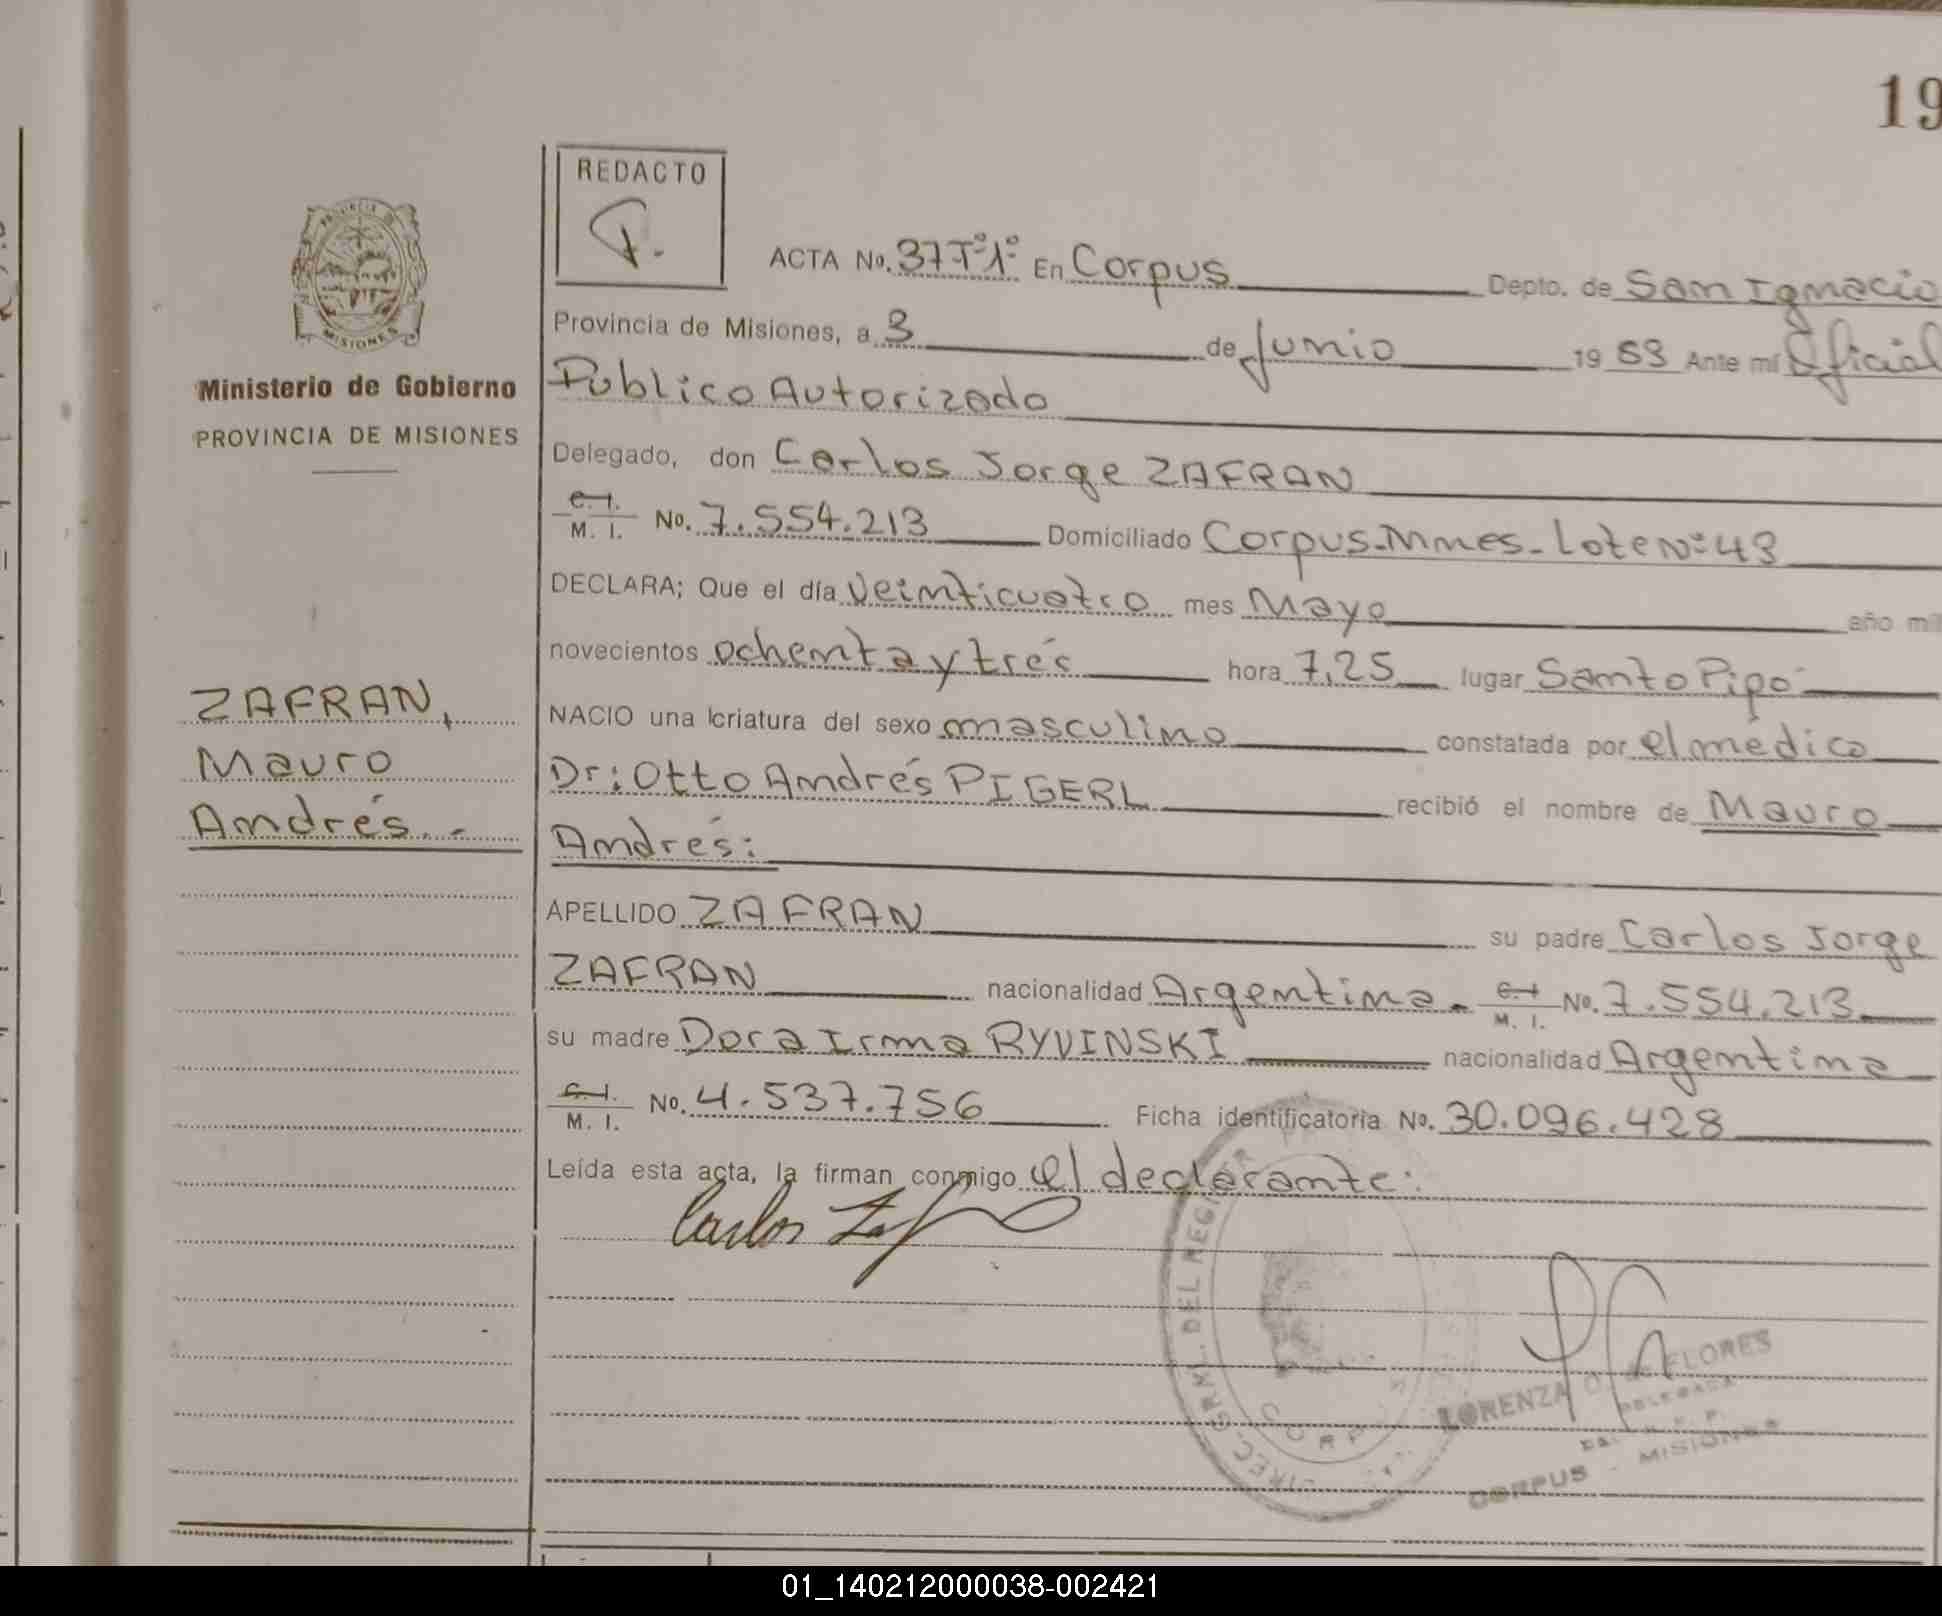 19
REDACTO
ACTA No. 37 Tº 1º En Corpus Depto. de San Ignacio
Provincia de Misiones, a 3 de Junio 19 83 Ante mí Oficial
Público Autorizado
Delegado, don Carlos Jorge ZAFRAN
C. I. M. I. No. 7.554.213 Domiciliado Corpus-Mnes-Lote Nº 43
DECLARA; Que el día veinticuatro mes Mayo año mil
novecientos ochenta y tres hora 7,25 lugar Santo Pipó
NACIO una criatura del sexo masculino constatada por el médico
Dr: Otto Andrés PIGERL recibió el nombre de Mauro
Andrés:
APELLIDO ZAFRAN su padre Carlos Jorge
ZAFRAN nacionalidad Argentina - C. I. M. I. No. 7.554.213
su madre Dora Irma RYVINSKI nacionalidad Argentina
C. I. M. I. No. 4.537.756 Ficha identificatoria No. 30.096.428
Leída esta acta, la firman conmigo el declarante:
Carlos
DIREC. GRML. DEL REGI
CORP
LORENZA FLORES
DELEGADA
MISIONES
CORPUS
MISIONES
Ministerio de Gobierno
PROVINCIA DE MISIONES
ZAFRAN,
Mauro
Andrés.-
01_140212000038-002421